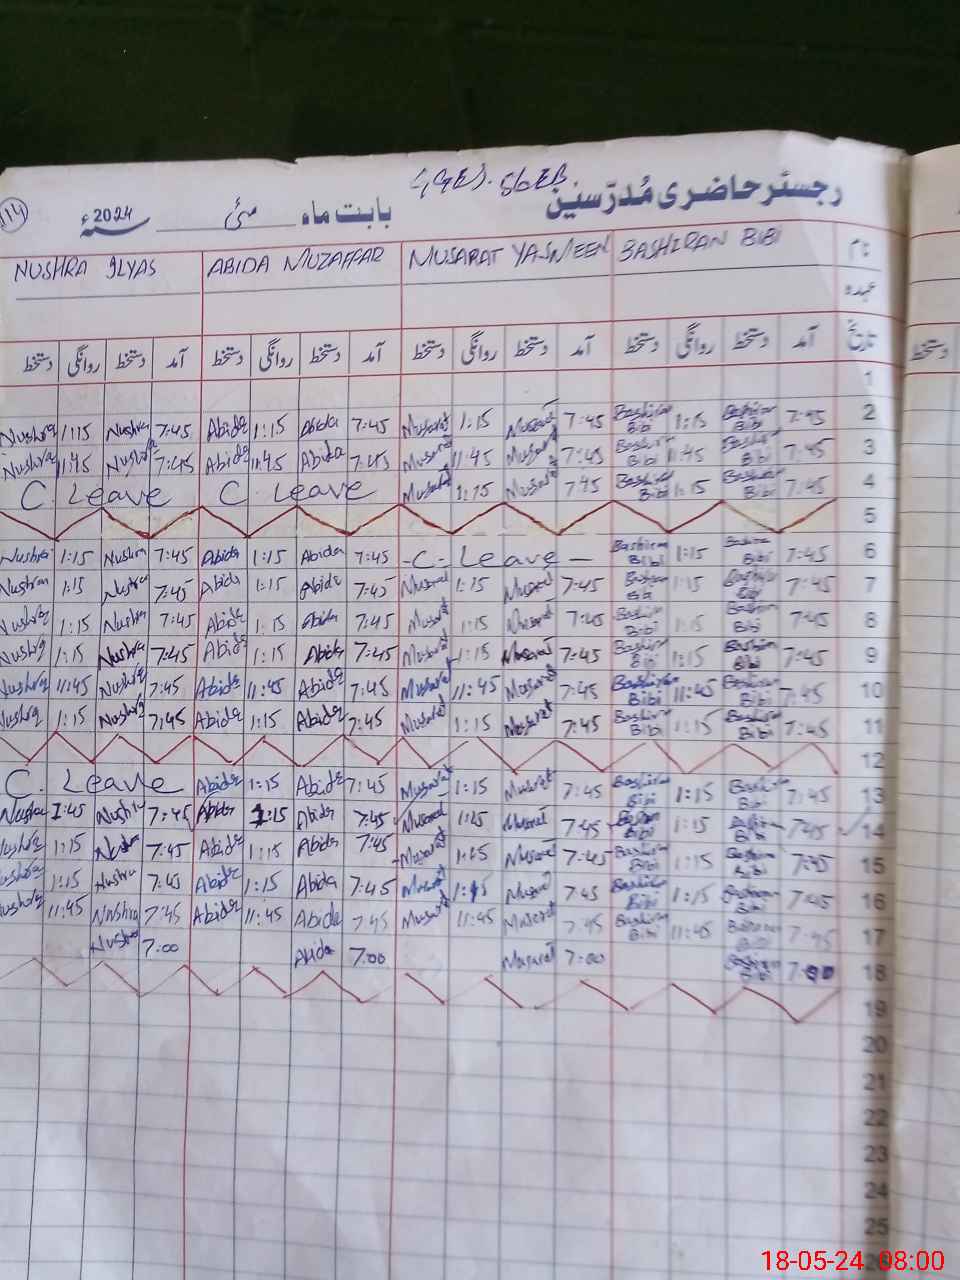 رجسٹر حاضری مُدرّسین
بابت ماہ مئی 2024ء
114
نام BASHIRAN BIBI MUSARAT YASMEEN ABIDA MUZAFFAR NUSHRA ILYAS
عہدہ
تاریخ آمد دستخط روانگی دستخط آمد دستخط روانگی دستخط آمد دستخط روانگی دستخط آمد دستخط روانگی دستخط
1
2 7:45 Bashiran Bibi 1:15 Bashiran Bibi 7:45 Musarat 1:15 Musarat 7:45 Abida 1:15 Abida 7:45 Nushra 1:15 Nushra
3 7:45 Bashiran Bibi 11:45 Bashiran Bibi 7:45 Musarat 11:45 Musarat 7:45 Abida 11:45 Abida 7:45 Nushra 11:45 Nushra
4 7:45 Bashiran Bibi 1:15 Bashiran Bibi 7:45 Musarat 1:15 Musarat C. Leave C. Leave
5
6 7:45 Bashiran Bibi 1:15 Bashiran Bibi -C- Leave- 7:45 Abida 1:15 Abida 7:45 Nushra 1:15 Nushra
7 7:45 Bashiran Bibi 1:15 Bashiran Bibi 7:45 Musarat 1:15 Musarat 7:45 Abida 1:15 Abida 7:45 Nushra 1:15 Nushra
8 7:45 Bashiran Bibi 1:15 Bashiran Bibi 7:45 Musarat 1:15 Musarat 7:45 Abida 1:15 Abida 7:45 Nushra 1:15 Nushra
9 7:45 Bashiran Bibi 1:15 Bashiran Bibi 7:45 Musarat 1:15 Musarat 7:45 Abida 1:15 Abida 7:45 Nushra 1:15 Nushra
10 7:45 Bashiran Bibi 11:45 Bashiran Bibi 7:45 Musarat 11:45 Musarat 7:45 Abida 11:45 Abida 7:45 Nushra 11:45 Nushra
11 7:45 Bashiran Bibi 1:15 Bashiran Bibi 7:45 Musarat 1:15 Musarat 7:45 Abida 1:15 Abida 7:45 Nushra 1:15 Nushra
12
13 7:45 Bashiran Bibi 1:15 Bashiran Bibi 7:45 Musarat 1:15 Musarat 7:45 Abida 1:15 Abida C. Leave
14 7:45 Bashiran Bibi 1:15 Bashiran Bibi 7:45 Musarat 1:15 Musarat 7:45 Abida 1:15 Abida 7:45 Nushra Nushra
15 7:45 Bashiran Bibi 1:15 Bashiran Bibi 7:45 Musarat 1:15 Musarat 7:45 Abida 1:15 Abida 7:45 Nushra 1:15 Nushra
16 7:45 Bashiran Bibi 1:15 Bashiran Bibi 7:45 Musarat 1:15 Musarat 7:45 Abida 1:15 Abida 7:45 Nushra 1:15 Nushra
17 7:45 Bashiran Bibi 11:45 Bashiran Bibi 7:45 Musarat 11:45 Musarat 7:45 Abida 11:45 Abida 7:45 Nushra 11:45 Nushra
18 7:00 Bashiran Bibi 7:00 Musarat 7:00 Abida 7:00 Nushra
19
20
21
22
23
24
25
26
دستخط
18-05-24 08:00